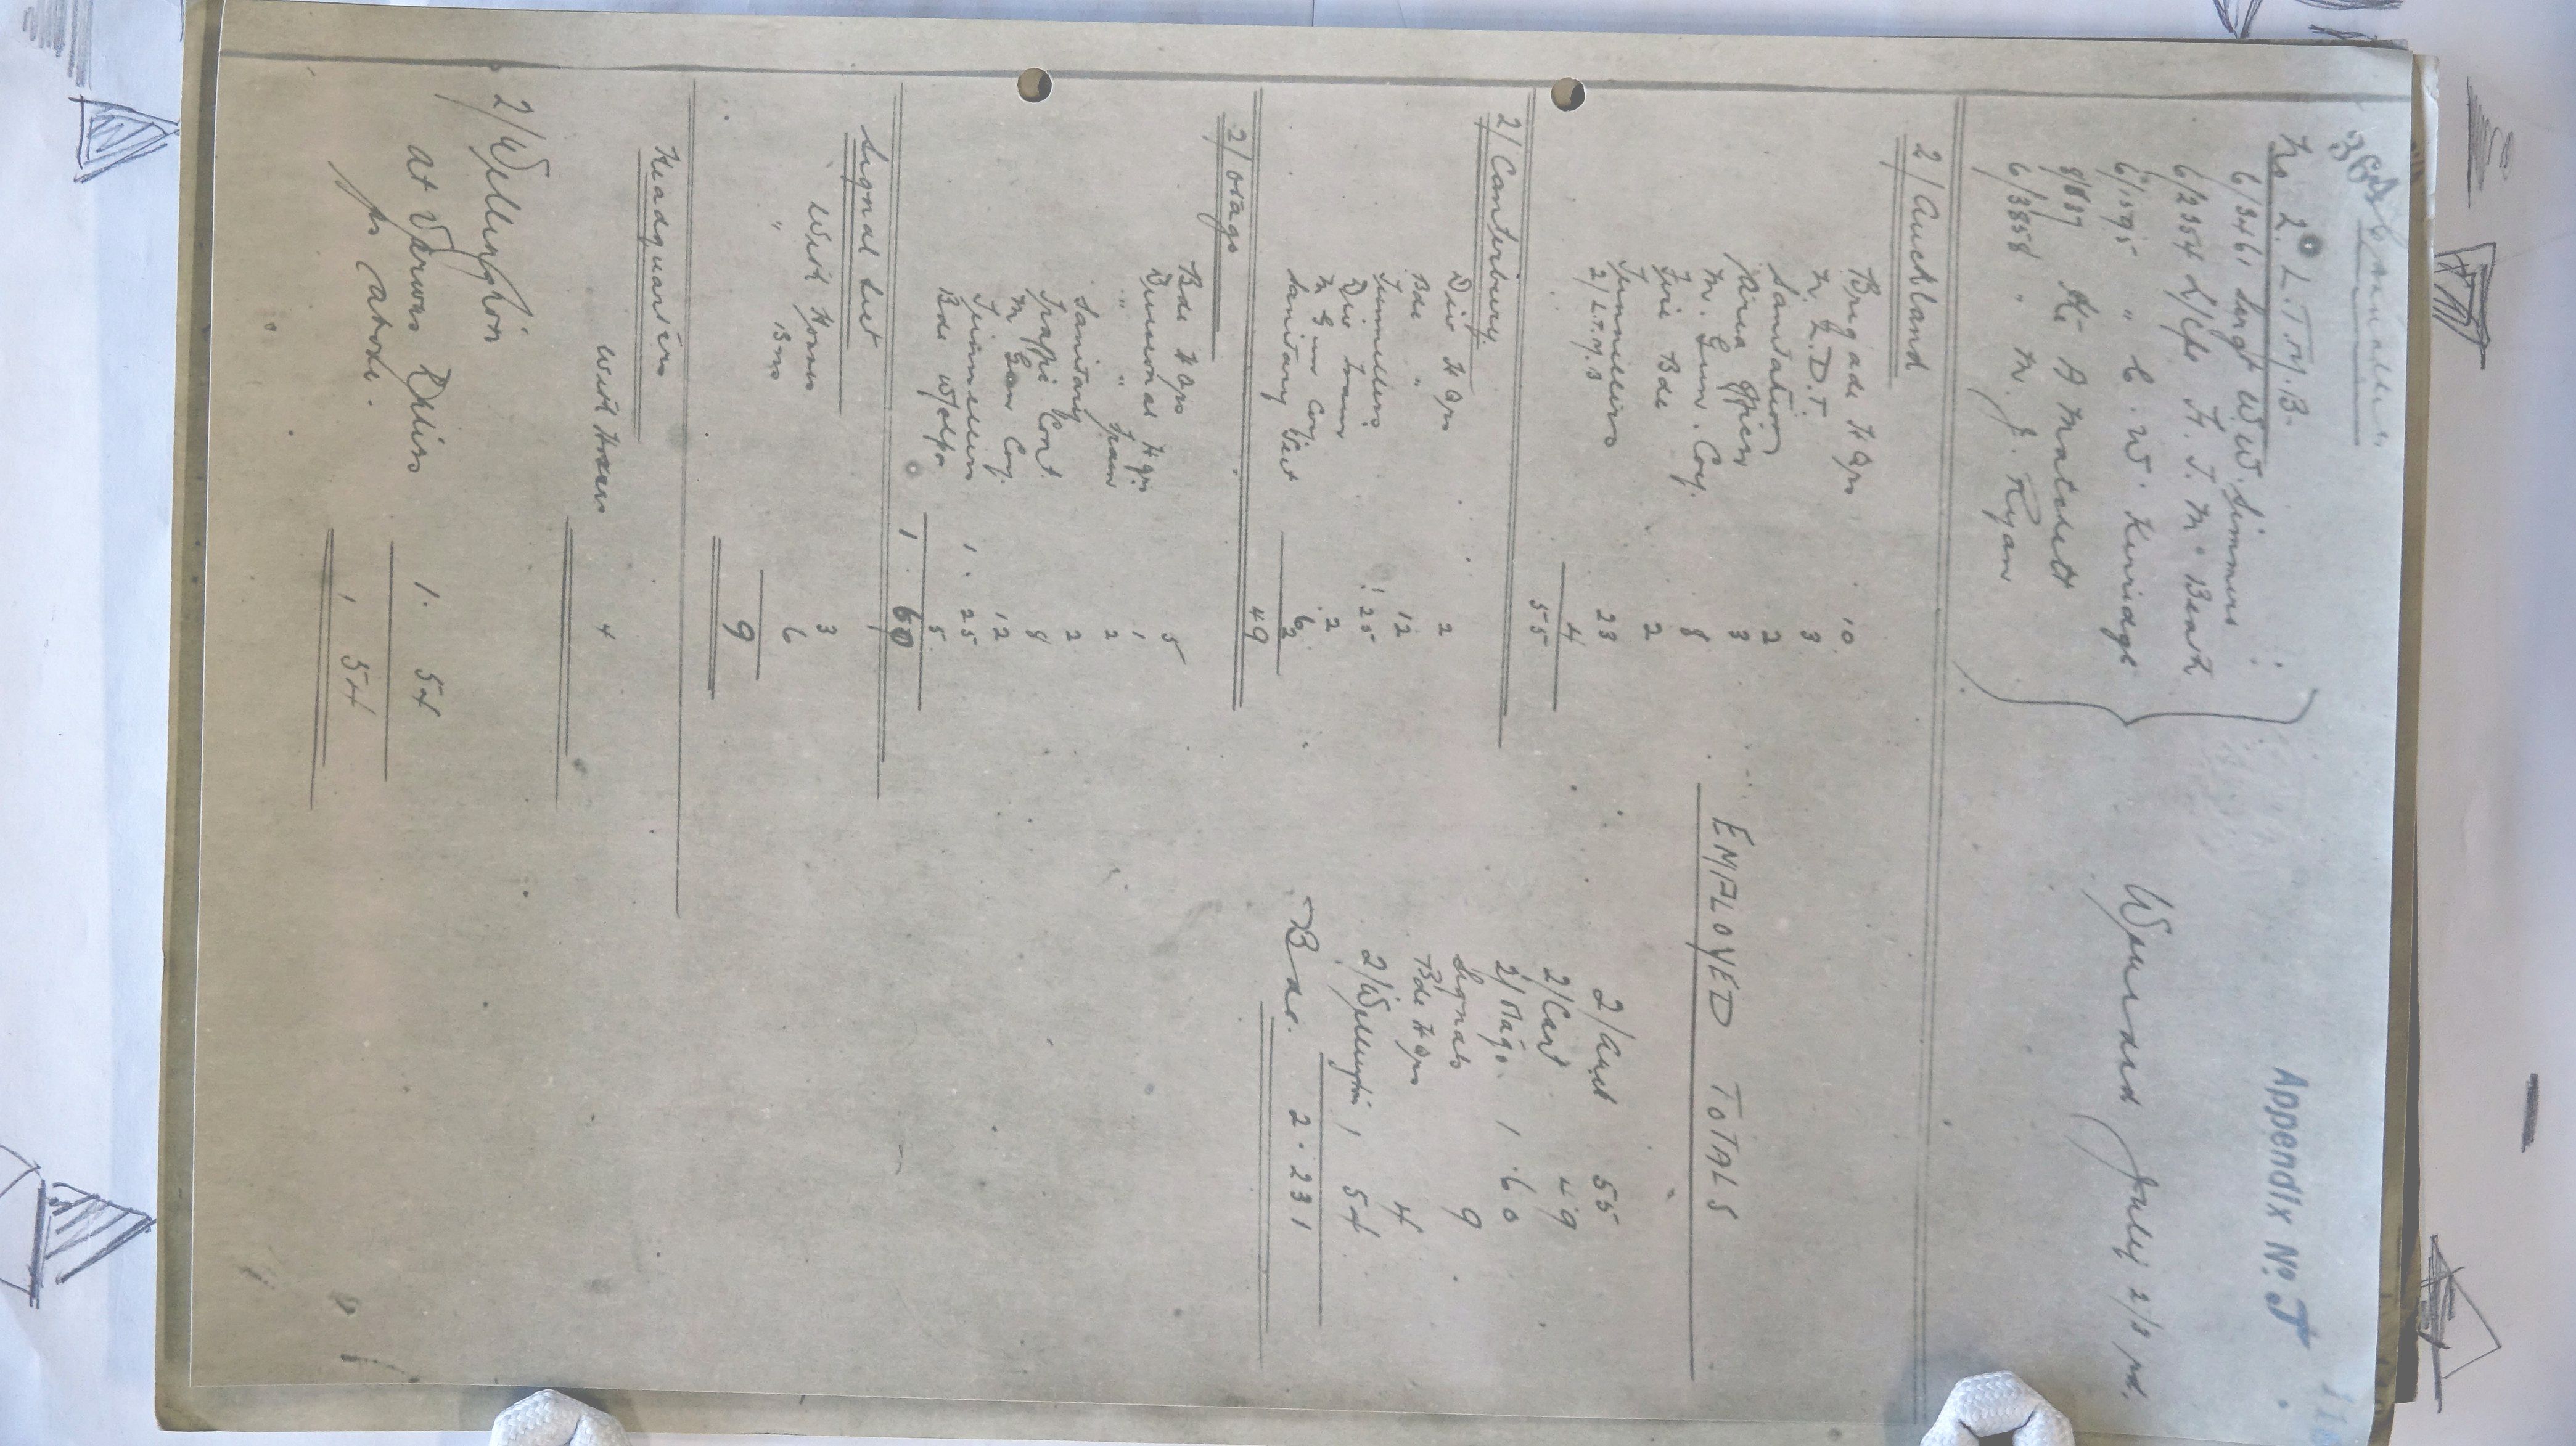 Casualties
Appendix No J.
No 2. L.T.M.B.
6/3461 Sergt W.W. Simmers
6/2354 L/Cpl H. J. McBeath
6/1595 " C. W. Kerridge
8/837 Pte A Matchett
6/3858 " M. J. Ryan
Wounded July 2/3rd.
2/Auckland
Brigade H Qrs 10
N.Z.D.T 3
Sanitation 2
Area Officer 3
M. Gun. Coy. 8
Fire Bde 2
Tunnellers 23
2/L.T.M.B 4
55
2/Canterbury
Div H Qrs 2
Bde "
Tunnellers 12
Div Train 1 25
M Gun Coy 2
Sanitary Sect 6
2
49
2/Otago
Bde H Qrs 5
Divisional H Qrs 1
" " Train 2
Sanitary 2
Traffic Cont 8
M Gun Coy. 12
Tunnellers 1. 25
Bde W/olfs 5
1. 60
Signal Sect
With Horses 3
" Bns 6
9
Headquarters
With Horses 4
2/Wellington
at Various Duties 1. 54
as above. 1 54
EMPLOYED TOTALS
2/Auck 55
2/Cant 49
2/Otago. 1 60
Signals 9
Bde H Qrs 4
2/Wellington 1 54
Bde. 2. 231